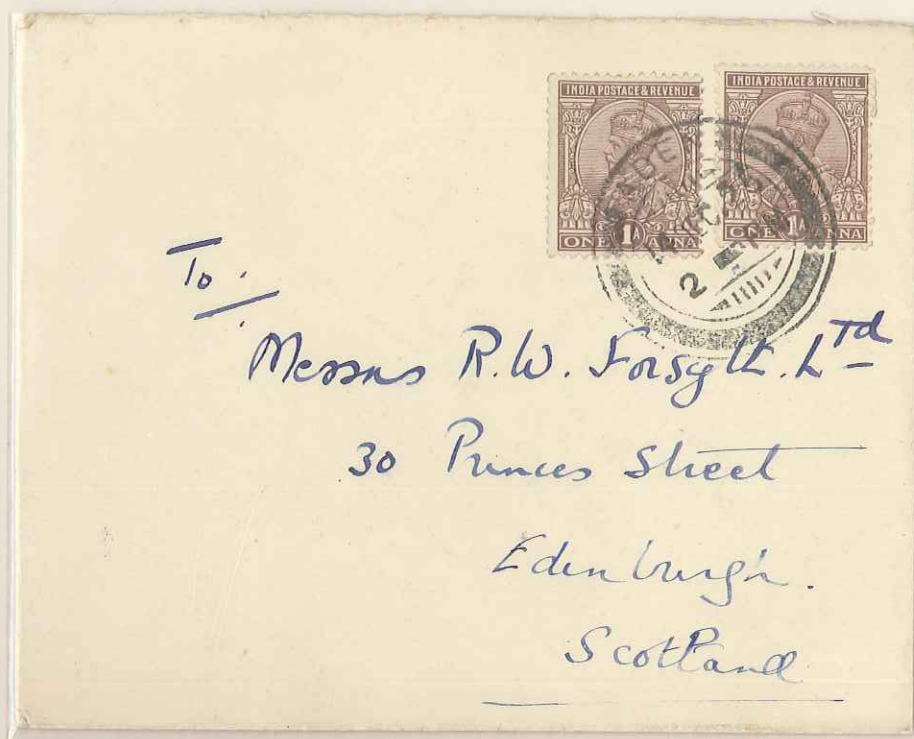 INDIA POSTAGE & REVENUE
ONE 1A ANNA
INDIA POSTAGE & REVENUE
ONE 1A ANNA
2
To.
Messrs R.W. Forsyth. Ltd
30 Princes Street
Edenburgh.
Scotland